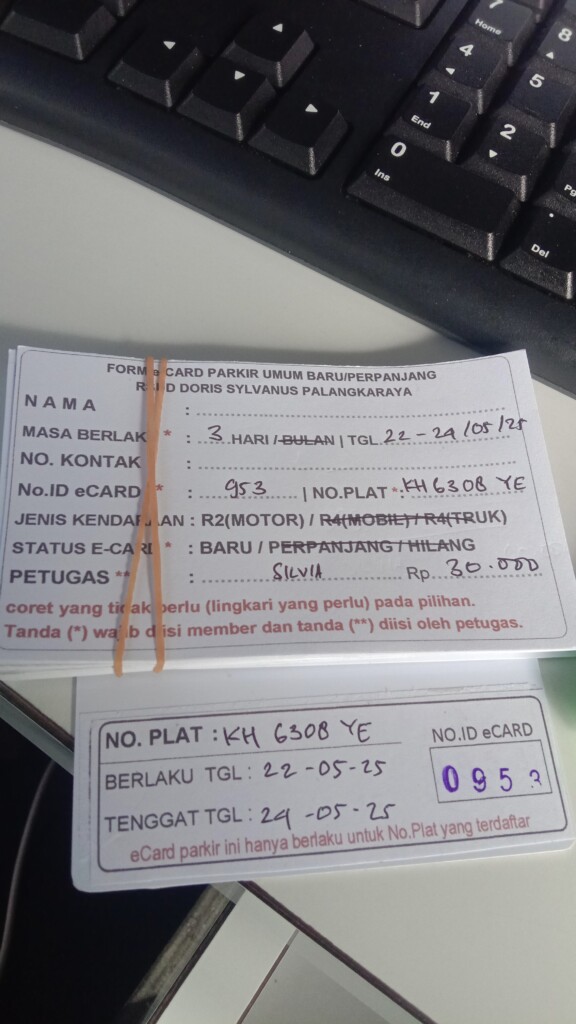 7 Home
8
4
5
1 End
2
0 Ins
Pg
Del
FORM eCARD PARKIR UMUM BARU/PERPANJANG
RSUD DORIS SYLVANUS PALANGKARAYA
NAMA :
MASA BERLAKU * : 3 HARI / BULAN | TGL 22 - 24 /05 /25
NO. KONTAK :
No.ID eCARD * : 953 | NO.PLAT *: KH 6308 YE
JENIS KENDARAAN : R2(MOTOR) / R4(MOBIL) / R4(TRUK)
STATUS E-CARD * : BARU / PERPANJANG / HILANG
PETUGAS ** : SILVIA Rp 30.000
coret yang tidak perlu (lingkari yang perlu) pada pilihan.
Tanda (*) wajib diisi member dan tanda (**) diisi oleh petugas.
NO. PLAT : KH 6308 YE
NO.ID eCARD
BERLAKU TGL : 22-05-25
0953
TENGGAT TGL : 24-05-25
eCard parkir ini hanya berlaku untuk No.Plat yang terdaftar